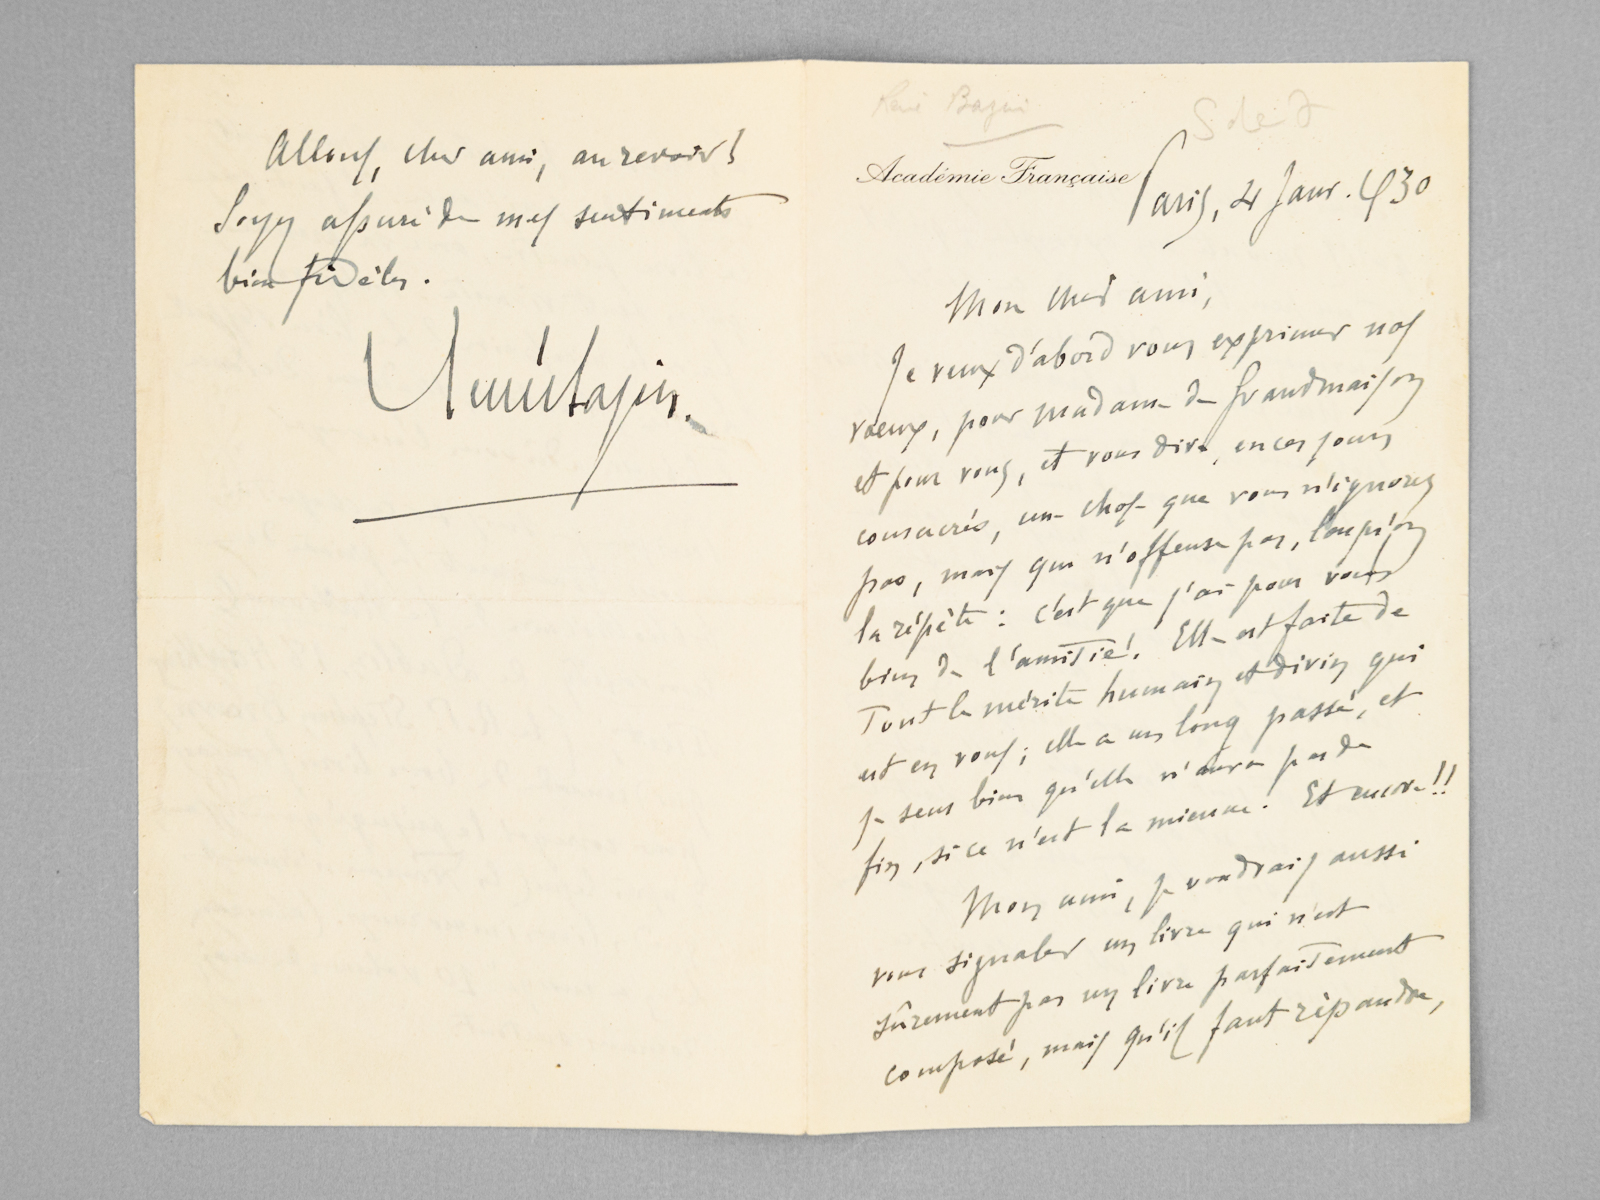 René Bazin
Académie Française
Paris, 4 Janv. 1930
Mon cher ami,
Je veux d'abord vous exprimer nos
vœux, pour madame de Grandmaison
et pour vous, et vous dire, en ces jours
consacrés, une chose que vous n'ignorez
pas, mais qui n'offense pas, lorsqu'on
la répète : c'est que j'ai pour vous
bien de l'amitié. Elle est faite de
tout le mérite humain et divin qui
est en vous ; elle a un long passé, et
je sens bien qu'elle n'aura pas de
fin, si ce n'est la mienne. Et encore !!
Mon ami, je voudrais aussi
vous signaler un livre qui n'est
sûrement pas un livre parfaitement
composé, mais qu'il faut répandre,
Allons, cher ami, au revoir !
Soyez assuré de mes sentiments
bien fidèles.
René Bazin.